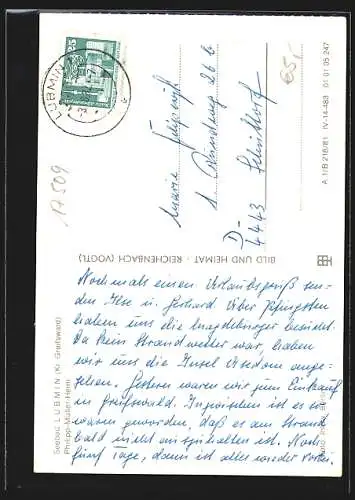 LUBMIN
25
17509
€5,-
Marie
D-
4443 Schüttorf
A 1/B 218/81 IV-14-483 01 01 05 247
BILD UND HEIMAT · REICHENBACH (VOGTL)
Seebad LUBMIN (Kr. Greifswald)
Philipp-Müller-Heim
Nochmals einen Urlaubsgruß sen-
den Ilse u. Gerhard. Über Pfingsten
haben uns die Magdeburger besucht.
Da kein Strandwetter war, haben
wir uns die Insel Usedom ange-
sehen. Gestern waren wir zum Einkauf
in Greifswald. Inzwischen ist es so
warm geworden, daß es am Strand
bald nicht auszuhalten ist. Noch
fünf Tage, dann ist alles wieder vorbei.